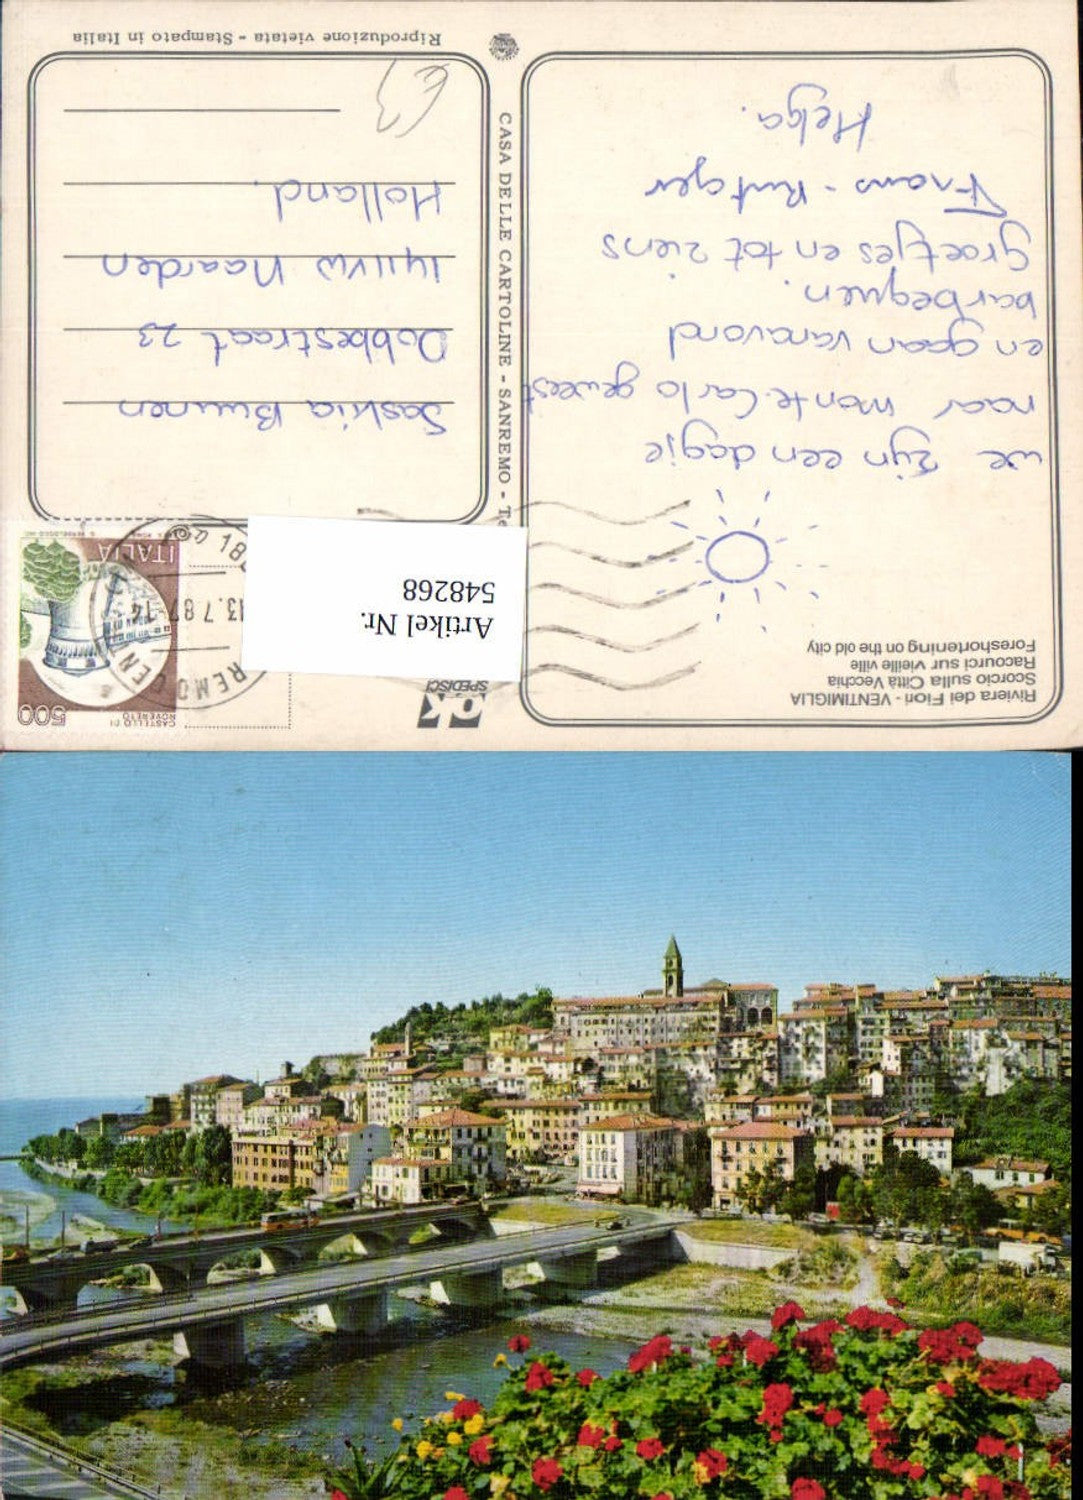 Riviera dei Fiori - VENTIMIGLIA
Scorcio sulla Città Vecchia
Racourci sur vieille ville
Foreshortening on the old city
we zijn een dagje
naar Monte-Carlo geweest
en gaan vanavond
barbequen.
groetjes en tot ziens
Frans - Rutger
Helga.
CASA DELLE CARTOLINE - SANREMO - Te
OK
SPEDISCI
CASTELLO DI
ROVERETO
500
ITALIA
13.7.87 14
Artikel Nr.
548268
Saskia Buunen
Dobbestraat 23
1411VW Naarden
Holland.
€3
Riproduzione vietata - Stampato in Italia